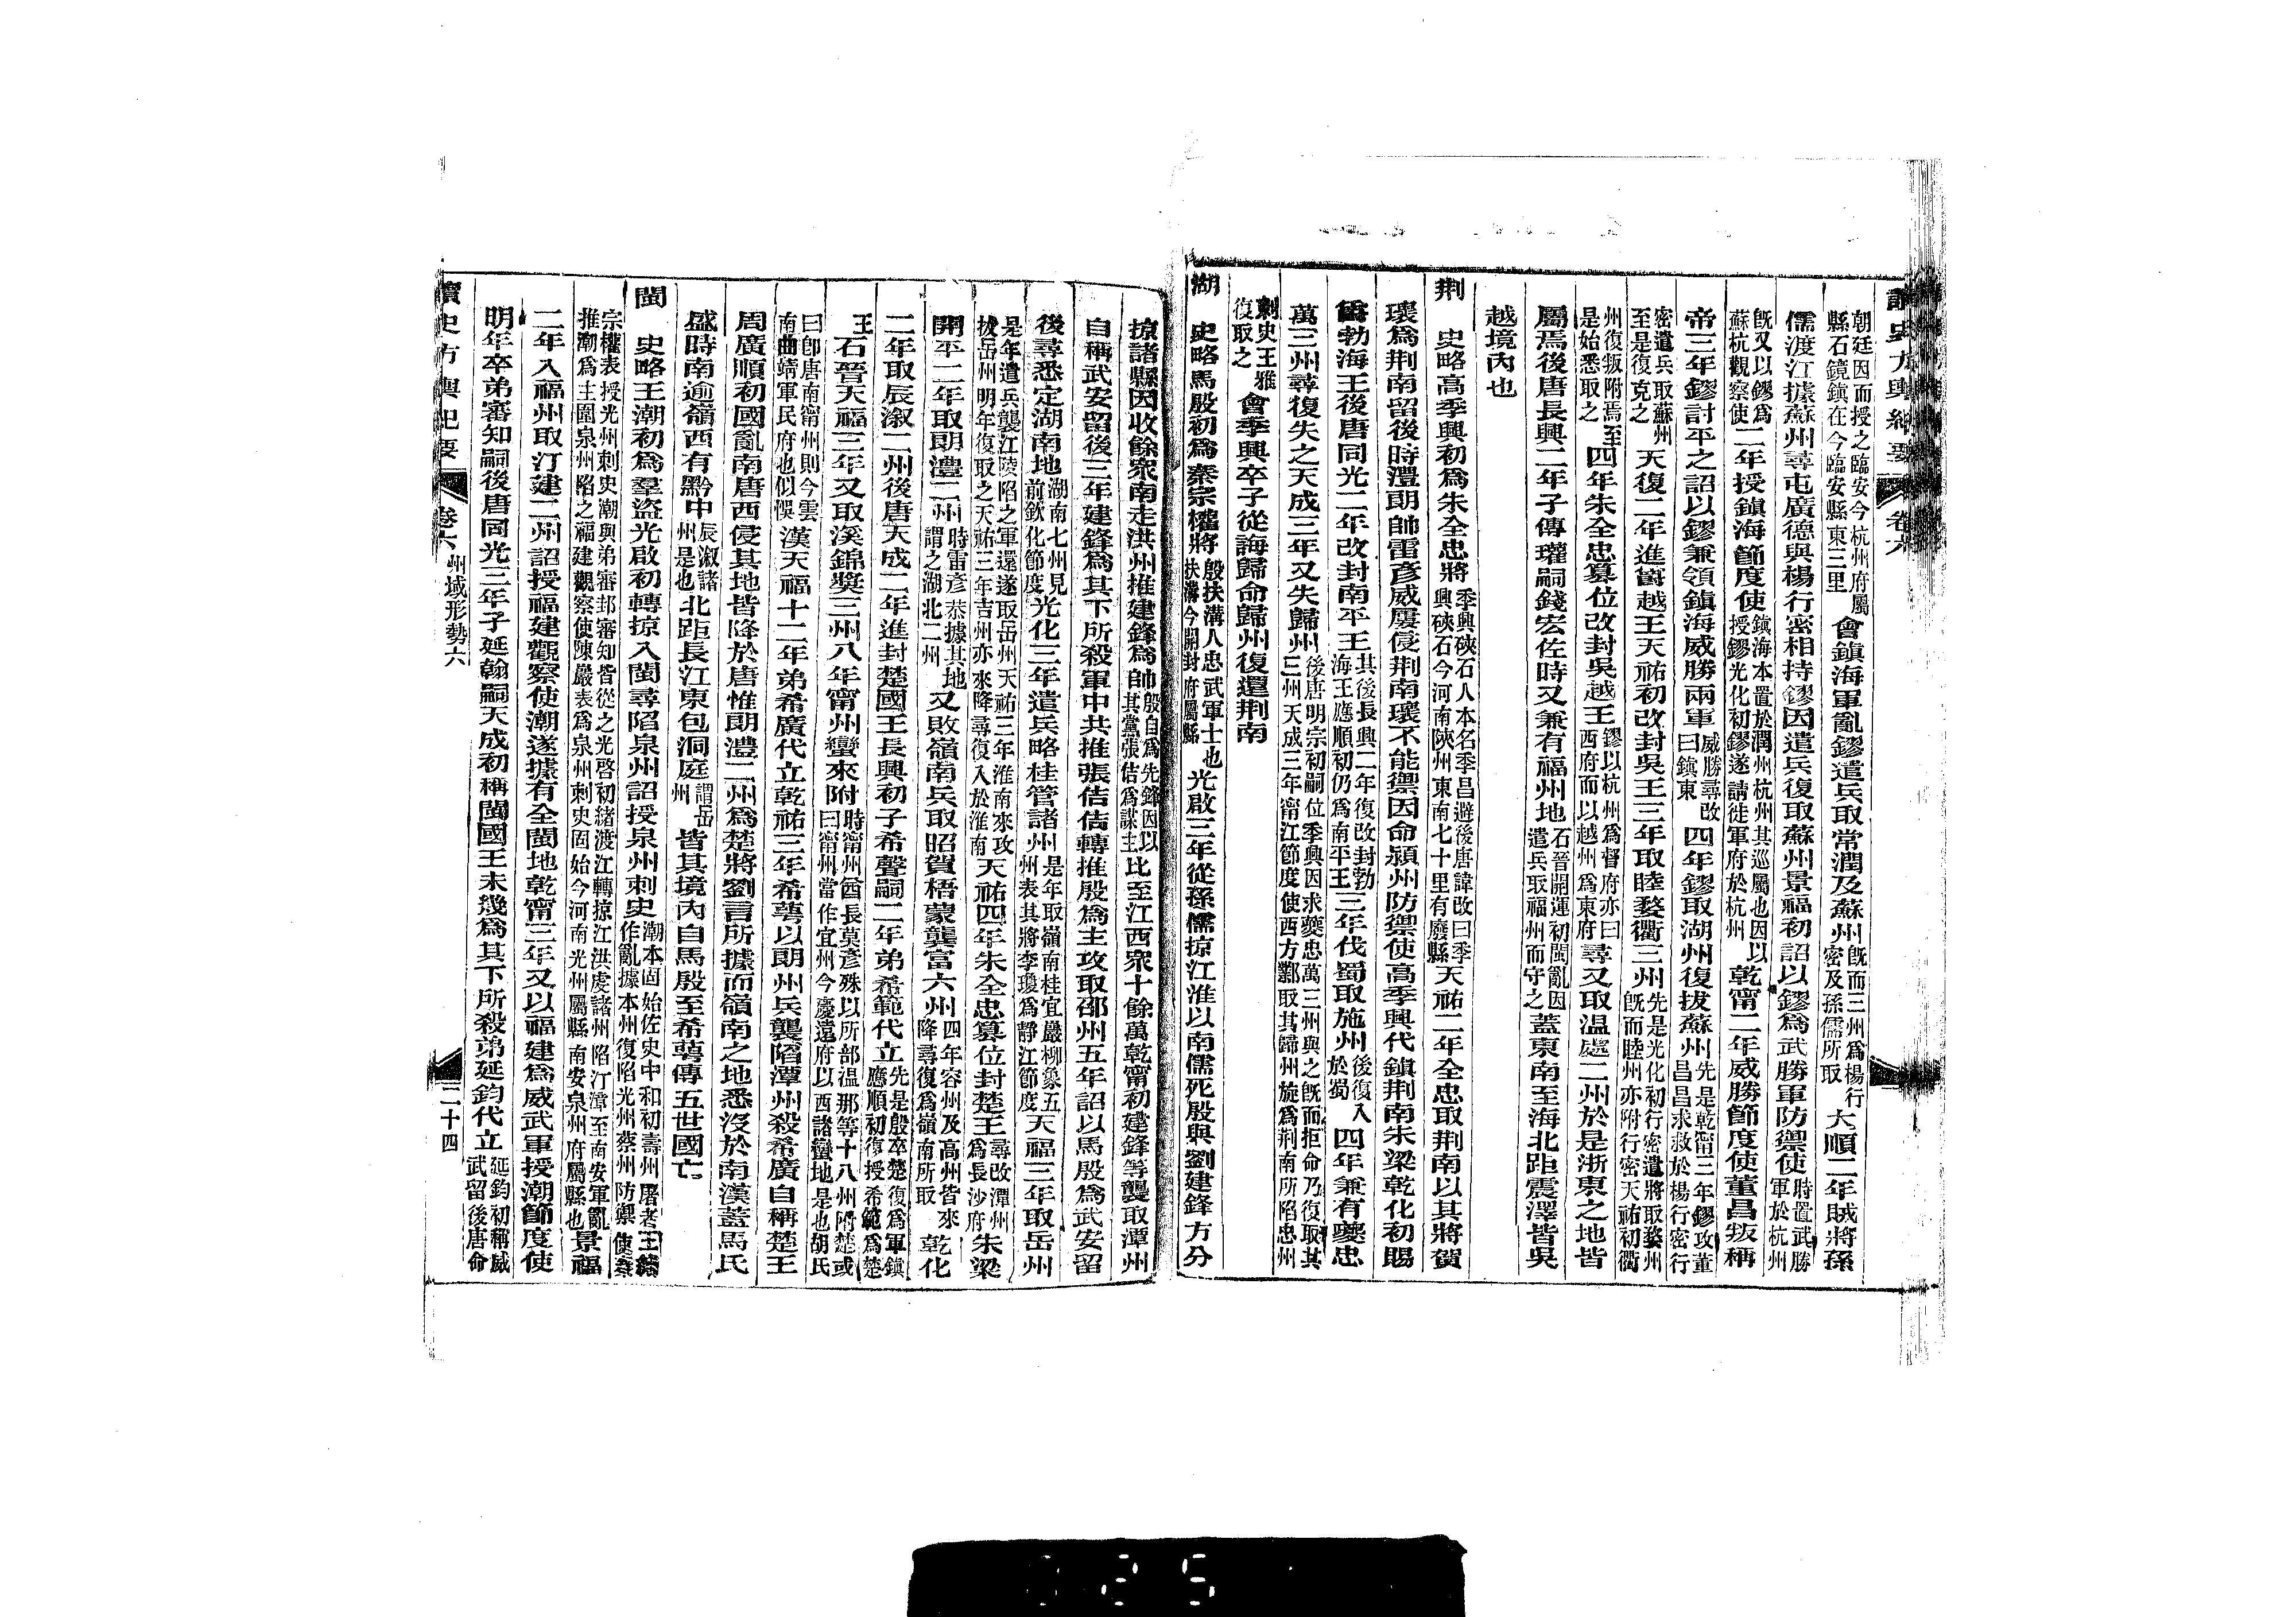 讀史方輿紀要 卷六
朝廷因而授之臨安今杭州府屬縣石鏡鎮在今臨安縣東三里會鎮海軍亂鏐遣兵取常潤及蘇州既而三州爲楊行密及孫儒所取大順二年賊將孫
儒渡江據蘇州尋屯廣德與楊行密相持鏐因遣兵復取蘇州景福初詔以鏐爲武勝軍防禦使時置武勝軍於杭州
既又以鏐爲蘇杭觀察使二年授鎮海節度使鎮海本置於潤州杭州其巡屬也因以授鏐光化初鏐遂請徙軍府於杭州乾甯二年威勝節度使董昌叛稱
帝三年鏐討平之詔以鏐兼領鎮海威勝兩軍威勝尋改曰鎮東四年鏐取湖州復拔蘇州先是乾甯三年鏐攻董昌昌求救於楊行密行
密遣兵取蘇州至是復克之天復二年進爵越王天祐初改封吳王三年取睦婺衢三州先是光化初行密遣將取婺州既而睦州亦附行密天祐初衢
州復叛附焉至是始悉取之四年朱全忠篡位改封吳越王鏐以杭州爲督府亦曰西府而以越州爲東府尋又取温處二州於是浙東之地皆
屬焉後唐長興二年子傳瓘嗣錢宏佐時又兼有福州地石晉開運初閩亂因遣兵取福州而守之蓋東南至海北距震澤皆吳
越境內也
荆 史略高季興初爲朱全忠將季興硤石人本名季昌避後唐諱改曰季興硤石今河南陝州東南七十里有廢縣天祐二年全忠取荆南以其將賀
瓌爲荆南留後時澧朗帥雷彥威屢侵荆南瓌不能禦因命潁州防禦使高季興代鎮荆南朱梁乾化初賜
爵勃海王後唐同光二年改封南平王其後長興二年復改封勃海王應順初仍爲南平王三年伐蜀取施州後復入於蜀四年兼有夔忠
萬三州尋復失之天成三年又失歸州後唐明宗初嗣位季興因求夔忠萬三州與之既而拒命乃復取其三州天成三年甯江節度使西方鄴取其歸州旋爲荆南所陷忠州
刺史王雅復取之會季興卒子從誨歸命歸州復還荆南
湖 史略馬殷初爲秦宗權將殷扶溝人忠武軍士也扶溝今開封府屬縣光啟三年從孫儒掠江淮以南儒死殷與劉建鋒方分
掠諸縣因收餘眾南走洪州推建鋒爲帥殷自爲先鋒因以其黨張佶爲謀主比至江西眾十餘萬乾甯初建鋒等襲取潭州
自稱武安留後三年建鋒爲其下所殺軍中共推張佶佶轉推殷爲主攻取邵州五年詔以馬殷爲武安留
後尋悉定湖南地湖南七州見前欽化節度光化三年遣兵略桂管諸州是年取嶺南桂宜嚴柳象五州表其將李瓊爲靜江節度天福三年取岳州
是年遣兵襲江陵陷之軍還遂取岳州天祐三年淮南來攻拔岳州明年復取之天祐三年吉州亦來降尋復入於淮南天祐四年朱全忠篡位封楚王尋改潭州爲長沙府朱梁
開平二年取朗澧二州時雷彥恭據其地謂之湖北二州又敗嶺南兵取昭賀梧蒙龔富六州四年容州及高州皆來降尋復爲嶺南所取乾化
二年取辰溆二州後唐天成二年進封楚國王長興初子希聲嗣二年弟希範代立先是殷卒楚復爲軍鎮應順初復授希範爲楚
王石晉天福三年又取溪錦奬三州八年甯州蠻來附時甯州酋長莫彥殊以所部温那等十八州附楚或曰甯州當作宜州今慶遠府以西諸蠻地是也胡氏
曰卽唐南甯州則今雲南曲靖軍民府也似悞漢天福十二年弟希廣代立乾祐三年希萼以朗州兵襲陷潭州殺希廣自稱楚王
周廣順初國亂南唐西侵其地皆降於唐惟朗澧二州爲楚將劉言所據而嶺南之地悉沒於南漢蓋馬氏
盛時南逾嶺西有黔中辰溆諸州是也北距長江東包洞庭謂岳州皆其境內自馬殷至希萼傳五世國亡
閩 史略王潮初爲羣盜光啟初轉掠入閩尋陷泉州詔授泉州刺史潮本固始佐史中和初壽州屠者王緒作亂據本州復陷光州蔡州防禦使秦
宗權表授光州刺史潮與弟審邽審知皆從之光啓初緒渡江轉掠江洪虔諸州陷汀漳至南安軍亂推潮爲主圍泉州陷之福建觀察使陳巖表爲泉州刺史固始今河南光州屬縣南安泉州府屬縣也景福
二年入福州取汀建二州詔授福建觀察使潮遂據有全閩地乾甯三年又以福建爲威武軍授潮節度使
明年卒弟審知嗣後唐同光三年子延翰嗣天成初稱閩國王未幾爲其下所殺弟延鈞代立延鈞初稱威武留後唐命
讀史方輿紀要 卷六 州域形勢六 三十四
25